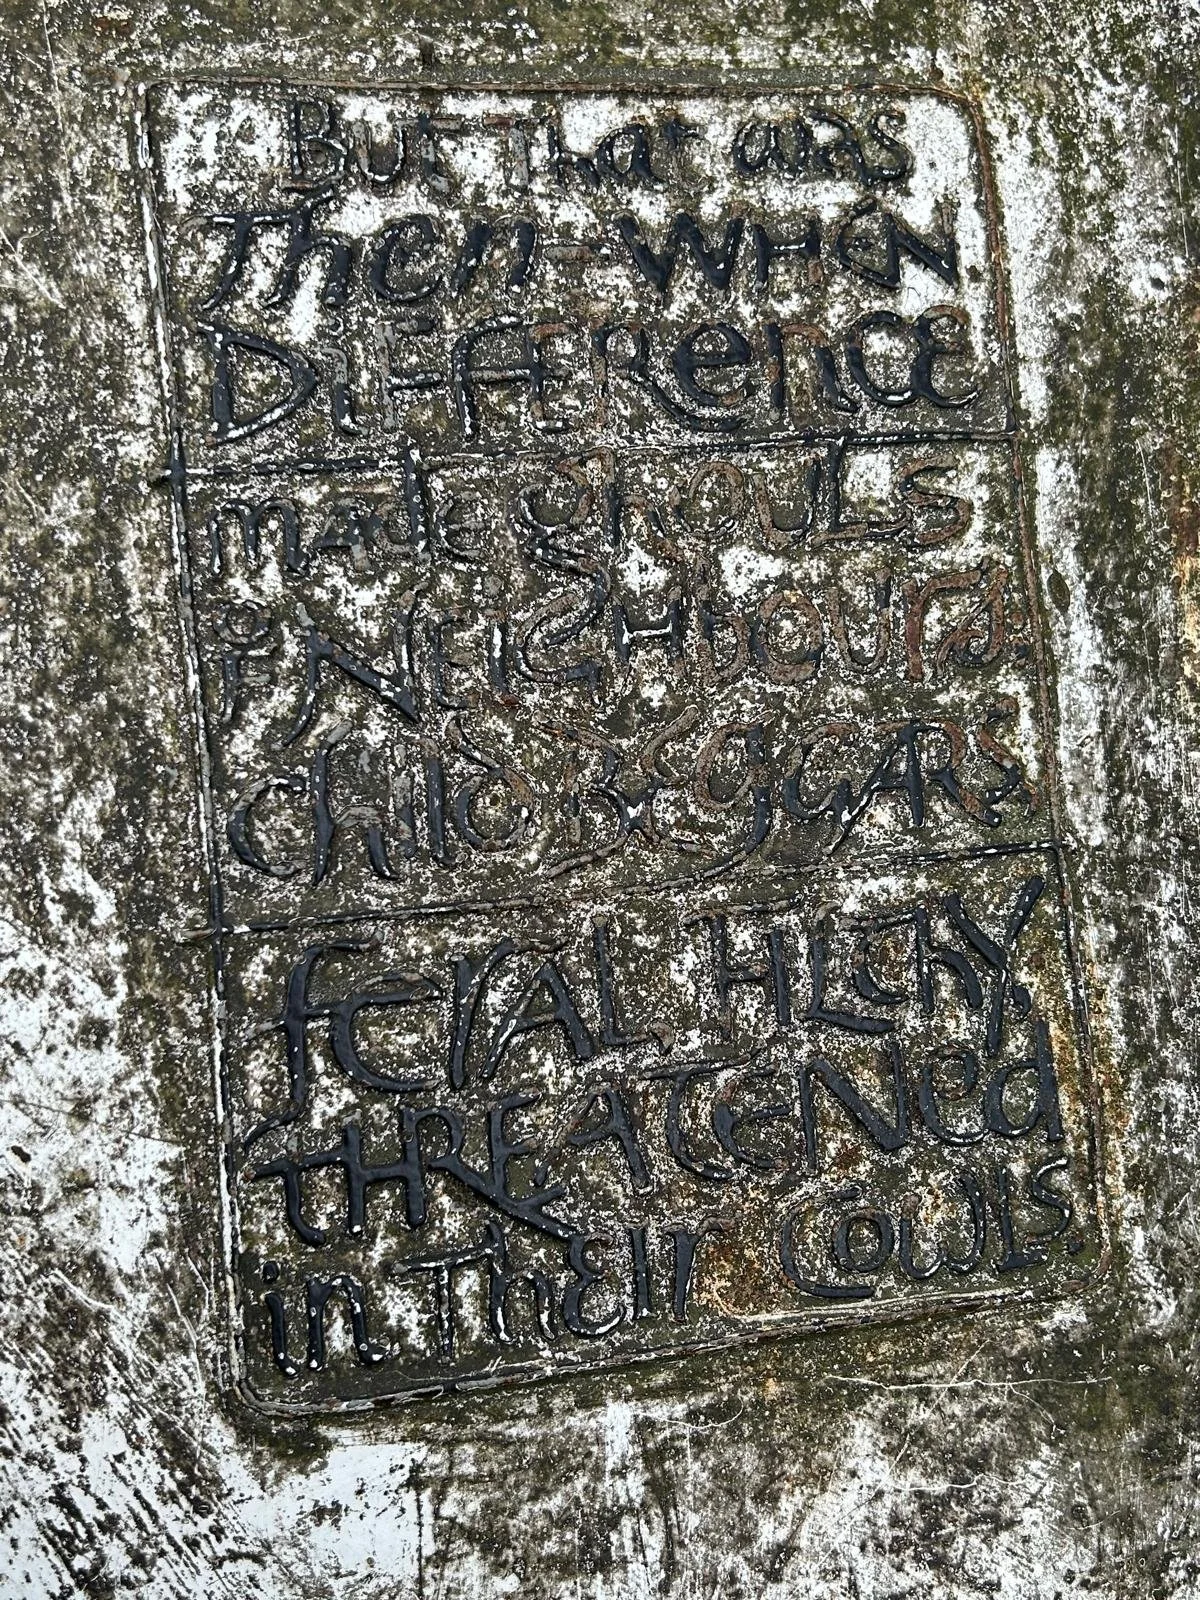 But That was
Then – WHEN
DiFFERence
made GhouLS
oF NEIGHbours:
chilD BEgGARS
FerAL, FILCHY,
THREATENed
in Their CowLS.